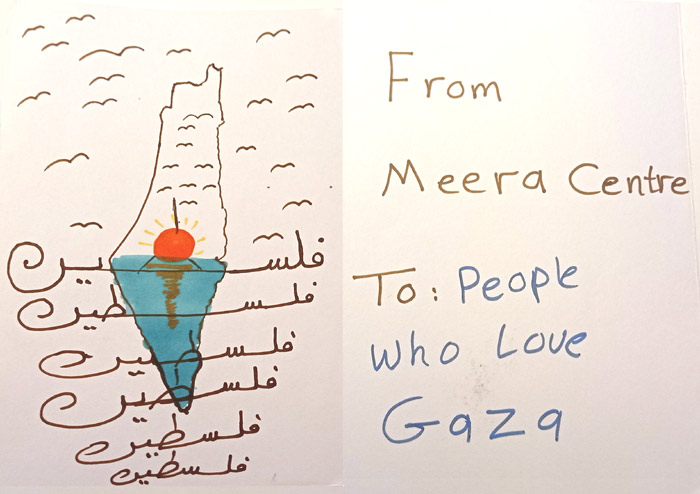 فلسطين
فلسطين
فلسطين
فلسطين
فلسطين
فلسطين
From
Meera Centre
To: People
Who Love
Gaza